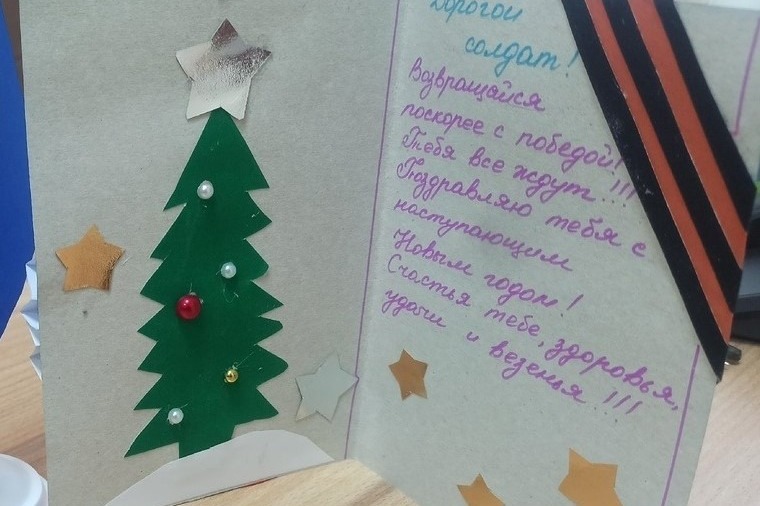 Дорогой
солдат!
Возвращайся
поскорее с победой!
Тебя все ждут...!!!
Поздравляю тебя с
наступающим
Новым годом!
Счастья тебе, здоровья,
удачи и везенья...!!!